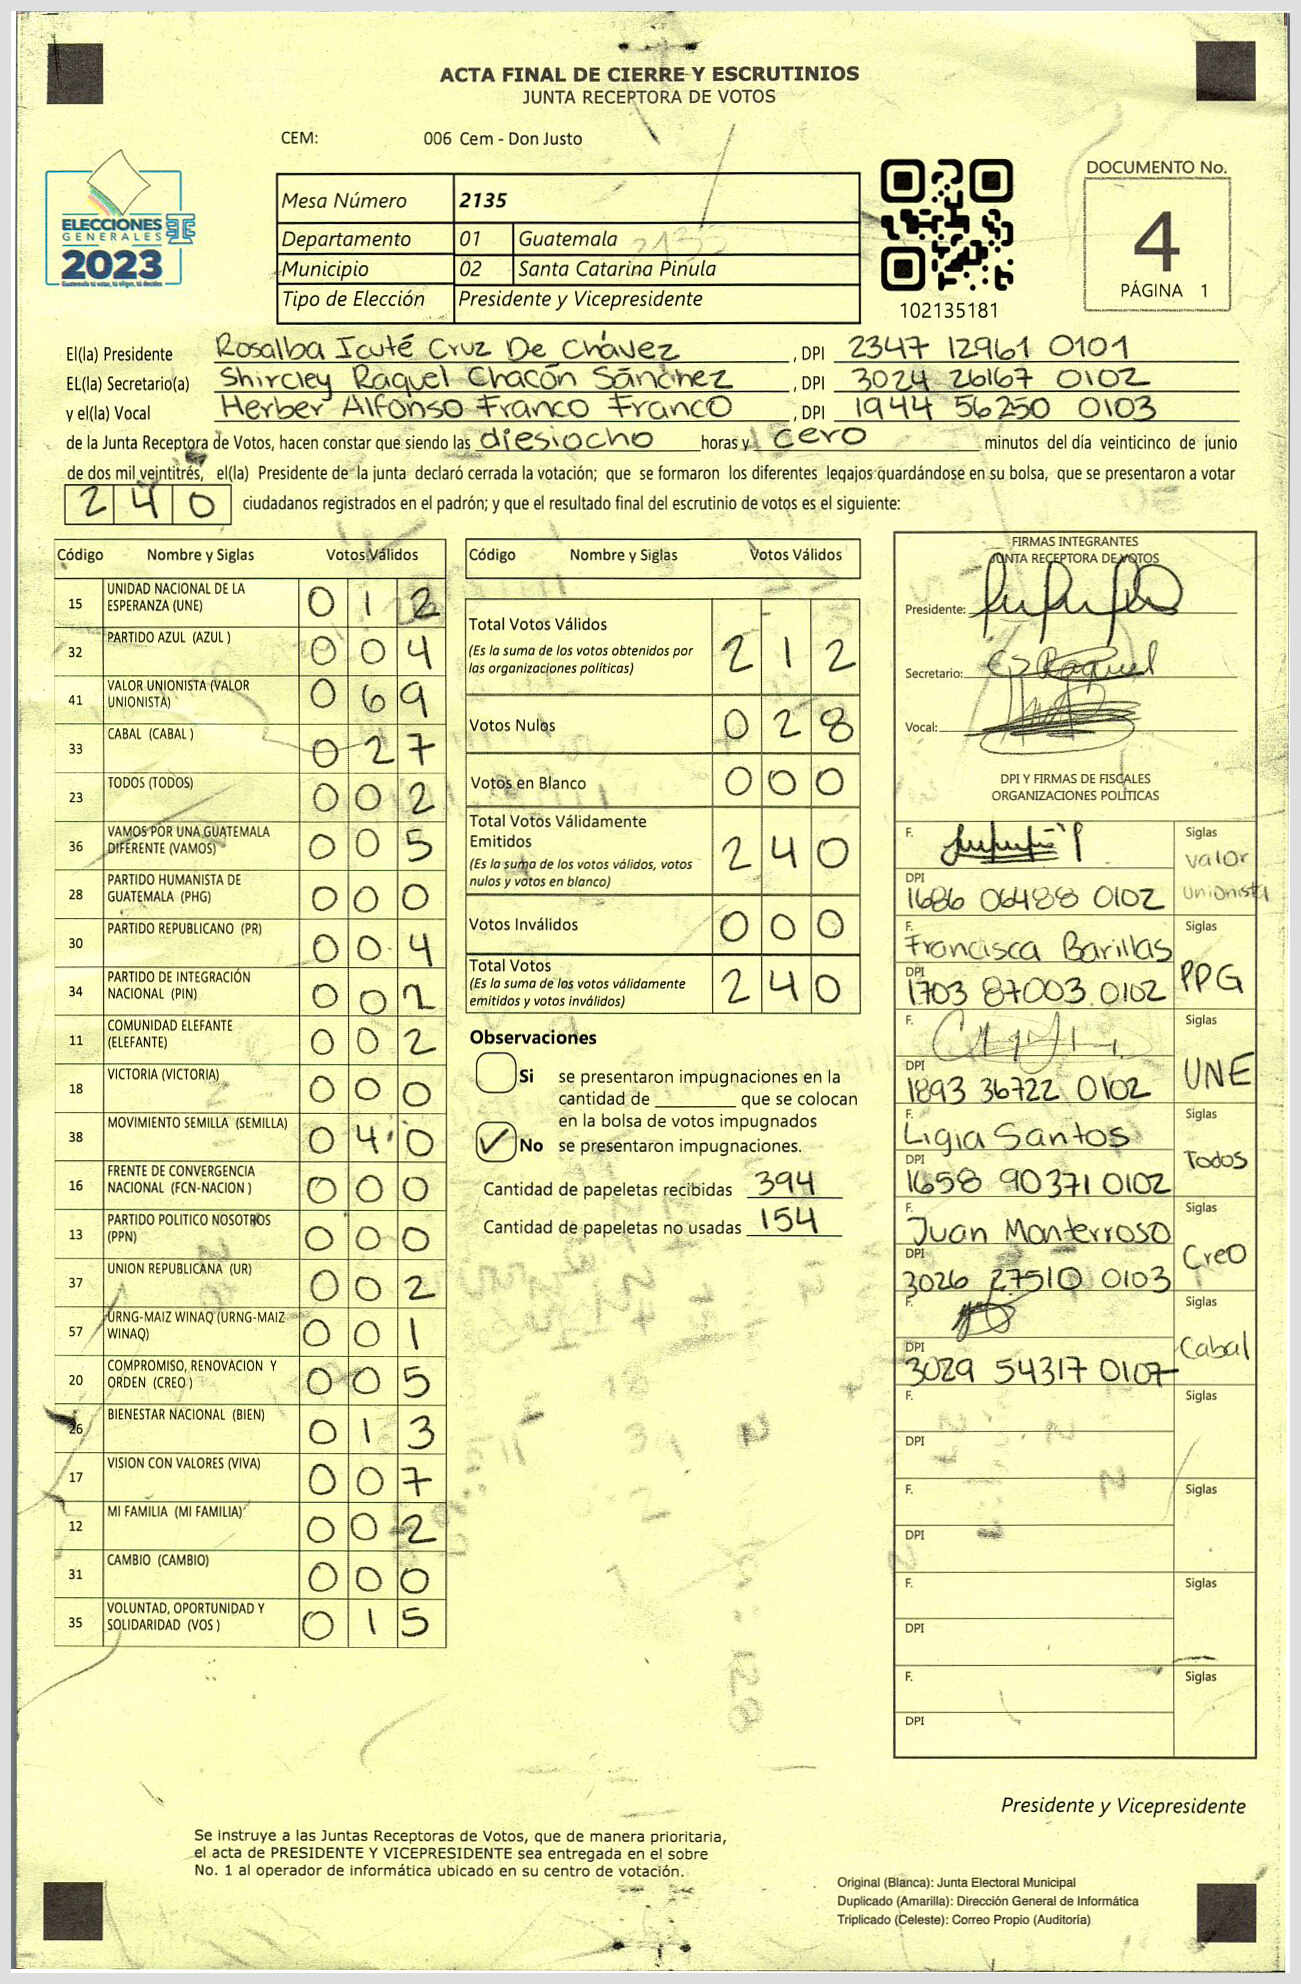 ACTA FINAL DE CIERRE Y ESCRUTINIOS
JUNTA RECEPTORA DE VOTOS
CEM: 006 Cem - Don Justo
ELECCIONES
GENERALES
2023
Mesa Número 2135
Departamento 01 Guatemala
Municipio 02 Santa Catarina Pinula
Tipo de Elección Presidente y Vicepresidente
102135181
DOCUMENTO No.
4
PÁGINA 1
El(la) Presidente Rosalba Icuté Cruz De Chávez , DPI 2347 12961 0101
EL(la) Secretario(a) Shircley Raquel Chacón Sánchez , DPI 3024 26167 0102
y el(la) Vocal Herber Alfonso Franco Franco , DPI 1944 56250 0103
de la Junta Receptora de Votos, hacen constar que siendo las diesiocho horas y cero minutos del día veinticinco de junio
de dos mil veintitrés, el(la) Presidente de la junta declaró cerrada la votación; que se formaron los diferentes legajos guardándose en su bolsa, que se presentaron a votar
240 ciudadanos registrados en el padrón; y que el resultado final del escrutinio de votos es el siguiente:
Código Nombre y Siglas Votos Válidos
15 UNIDAD NACIONAL DE LA ESPERANZA (UNE) 0 1 2
32 PARTIDO AZUL (AZUL ) 0 0 4
41 VALOR UNIONISTA (VALOR UNIONISTA) 0 6 9
33 CABAL (CABAL ) 0 2 7
23 TODOS (TODOS) 0 0 2
36 VAMOS POR UNA GUATEMALA DIFERENTE (VAMOS) 0 0 5
28 PARTIDO HUMANISTA DE GUATEMALA (PHG) 0 0 0
30 PARTIDO REPUBLICANO (PR) 0 0 4
34 PARTIDO DE INTEGRACIÓN NACIONAL (PIN) 0 0 2
11 COMUNIDAD ELEFANTE (ELEFANTE) 0 0 2
18 VICTORIA (VICTORIA) 0 0 0
38 MOVIMIENTO SEMILLA (SEMILLA) 0 4 0
16 FRENTE DE CONVERGENCIA NACIONAL (FCN-NACION ) 0 0 0
13 PARTIDO POLITICO NOSOTROS (PPN) 0 0 0
37 UNION REPUBLICANA (UR) 0 0 2
57 URNG-MAIZ WINAQ (URNG-MAIZ WINAQ) 0 0 1
20 COMPROMISO, RENOVACION Y ORDEN (CREO ) 0 0 5
26 BIENESTAR NACIONAL (BIEN) 0 1 3
17 VISION CON VALORES (VIVA) 0 0 7
12 MI FAMILIA (MI FAMILIA) 0 0 2
31 CAMBIO (CAMBIO) 0 0 0
35 VOLUNTAD, OPORTUNIDAD Y SOLIDARIDAD (VOS ) 0 1 5
Código Nombre y Siglas Votos Válidos
Total Votos Válidos 2 1 2
(Es la suma de los votos obtenidos por
las organizaciones políticas)
Votos Nulos 0 2 8
Votos en Blanco 0 0 0
Total Votos Válidamente
Emitidos 2 4 0
(Es la suma de los votos válidos, votos
nulos y votos en blanco)
Votos Inválidos 0 0 0
Total Votos 2 4 0
(Es la suma de los votos válidamente
emitidos y votos inválidos)
Observaciones
Si se presentaron impugnaciones en la
cantidad de ________ que se colocan
en la bolsa de votos impugnados
No se presentaron impugnaciones.
Cantidad de papeletas recibidas 394
Cantidad de papeletas no usadas 154
FIRMAS INTEGRANTES
JUNTA RECEPTORA DE VOTOS
Presidente:
Secretario: Raquel
Vocal:
DPI Y FIRMAS DE FISCALES
ORGANIZACIONES POLÍTICAS
F. Siglas
Valor
Unionista
DPI
1686 06488 0102
F. Francisca Barillas Siglas
PPG
DPI
1703 87003 0102
F. Siglas
UNE
DPI
1893 36722 0102
F. Ligia Santos Siglas
Todos
DPI
1658 90371 0102
F. Juan Monterroso Siglas
Creo
DPI
3026 27510 0103
F. Siglas
Cabal
DPI
3029 54317 0107
F. Siglas
DPI
F. Siglas
DPI
F. Siglas
DPI
F. Siglas
DPI
Presidente y Vicepresidente
Se instruye a las Juntas Receptoras de Votos, que de manera prioritaria,
el acta de PRESIDENTE Y VICEPRESIDENTE sea entregada en el sobre
No. 1 al operador de informática ubicado en su centro de votación.
Original (Blanca): Junta Electoral Municipal
Duplicado (Amarilla): Dirección General de Informática
Triplicado (Celeste): Correo Propio (Auditoría)